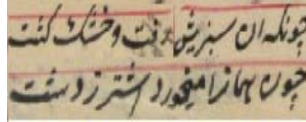 چونکه آن سبزیش رفت و خشک گشت
چون همانرا میخورد اشتر ز دشت